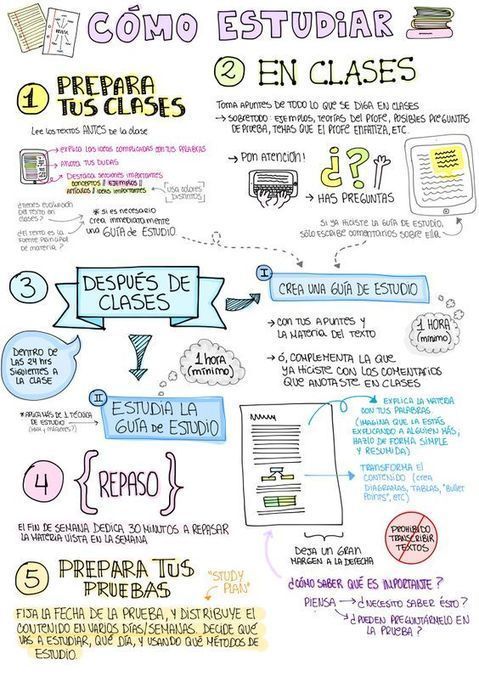 CÓMO ESTUDIAR
1 PREPARA
TUS CLASES
Lee los textos ANTES de la clase
→ explica las ideas complicadas con tus palabras
→ Anota tus dudas
→ Destaca secciones importantes
conceptos / ejemplos
artículos / ideas importantes
usa colores
distintos
¿Tienes evaluación
del texto en
clases?
¿El texto es la
fuente principal
de materia?
* si es necesario
crea inmediatamente
una GUÍA de ESTUDIO
2 EN CLASES
Toma apuntes de todo lo que se diga en clases
→ SOBRETODO: ejemplos, teorías del profe, posibles preguntas
de prueba, temas que el profe enfatiza, etc.
→ Pon atención!
¿?
→ HAS PREGUNTAS
SI YA HICISTE LA GUÍA DE ESTUDIO,
SÓLO ESCRIBE COMENTARIOS SOBRE ELLA
3 DESPUÉS DE
CLASES
DENTRO DE
LAS 24 hrs
SIGUIENTES A
LA CLASE
I
CREA UNA GUÍA DE ESTUDIO
1 HORA
(mínimo)
→ CON TUS APUNTES Y
LA MATERIA DEL TEXTO
→ Ó, COMPLEMENTA LA QUE
YA HICISTE CON LOS COMENTARIOS
QUE ANOTASTE EN CLASES
1 hora
(mínimo)
II
ESTUDIA LA
GUÍA DE ESTUDIO
* APLICA MÁS DE 1 TÉCNICA
DE ESTUDIO
EXPLICA LA MATERIA
CON TUS PALABRAS
(IMAGINA QUE LA ESTÁS
EXPLICANDO A ALGUIEN MÁS,
HAZLO DE FORMA SIMPLE
Y RESUMIDA)
TRANSFORMA EL
CONTENIDO (crea
DIAGRAMAS, TABLAS, "Bullet
Points", etc)
PROHIBIDO
TRANSCRIBIR
TEXTOS
DEJA UN GRAN
MARGEN A LA DERECHA
¿CÓMO SABER QUÉ ES IMPORTANTE?
PIENSA → ¿NECESITO SABER ÉSTO?
→ ¿PUEDEN PREGUNTÁRMELO EN
LA PRUEBA?
4 {REPASO}
EL FIN DE SEMANA DEDICA 30 MINUTOS A REPASAR
LA MATERIA VISTA EN LA SEMANA
5 PREPARA TUS
PRUEBAS
"STUDY
PLAN"
FIJA LA FECHA DE LA PRUEBA, Y DISTRIBUYE EL
CONTENIDO EN VARIOS DÍAS/SEMANAS. DECIDE QUÉ
VAS A ESTUDIAR, QUÉ DÍA, Y USANDO QUÉ MÉTODOS DE
ESTUDIO.